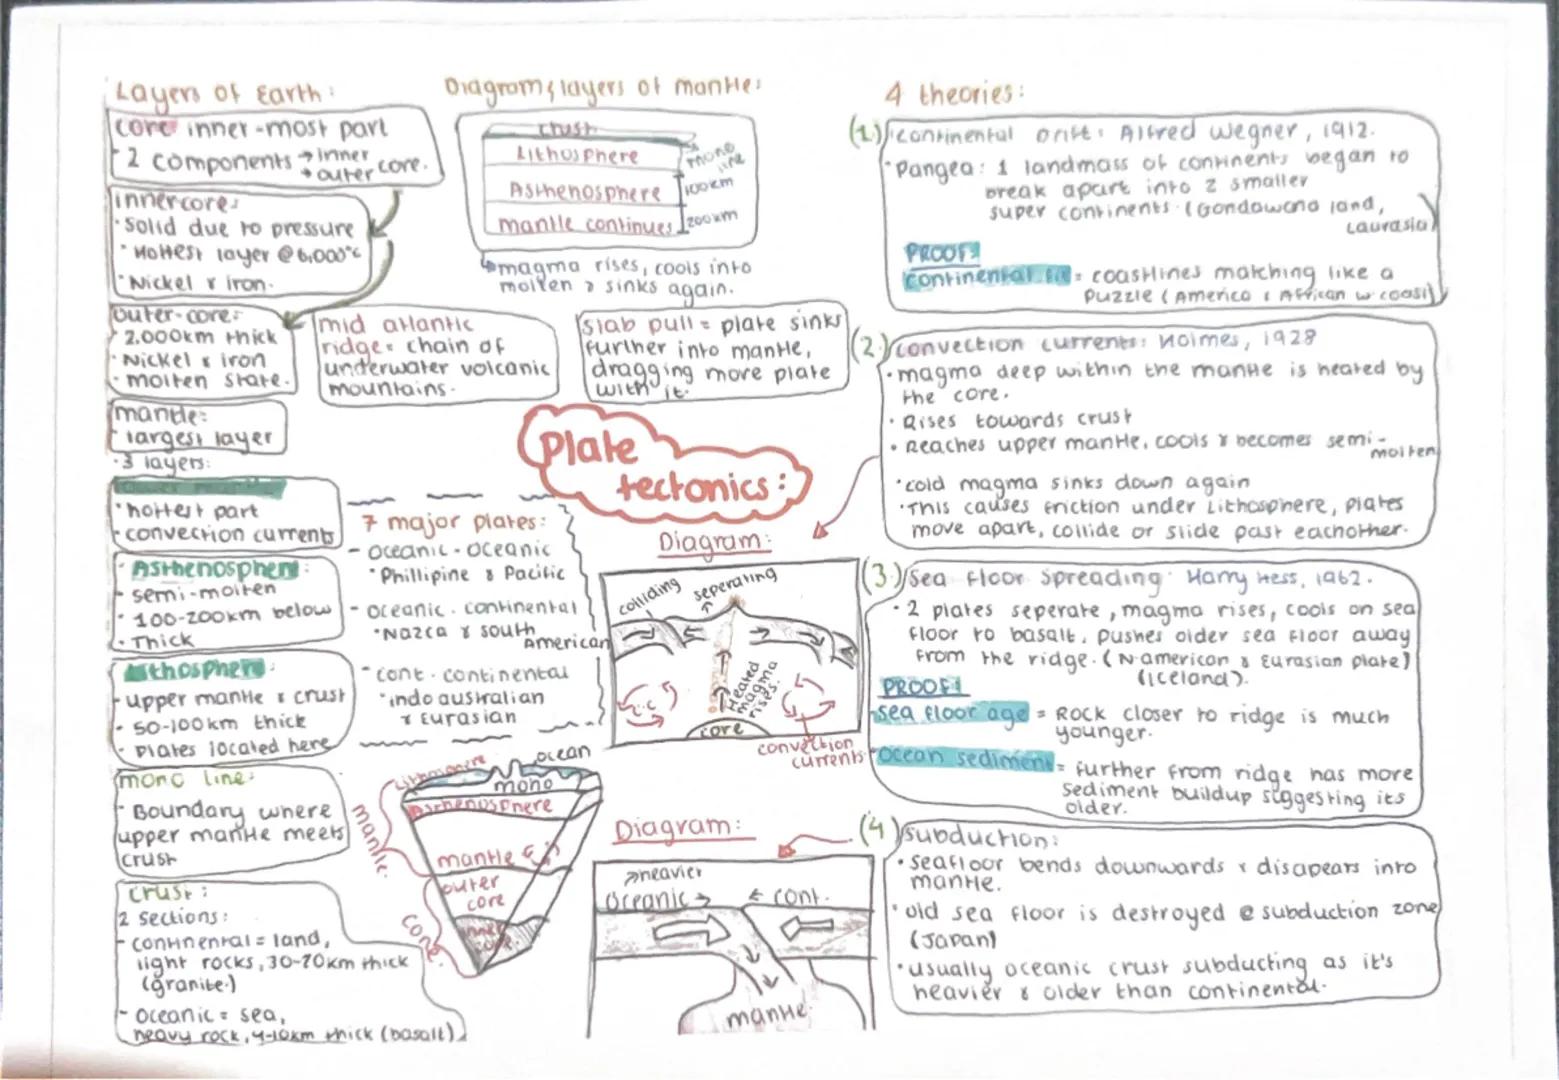 Layers of Earth:
core inner-most part
· 2 components → inner
→ outer core.
inner core:
· Solid due to pressure
· Hottest layer @ 6,000°c
· Nickel & iron.
outer-core:
· 2,000km thick
· Nickel & iron
· molten state.
mantle:
· largest layer
· 3 layers:
· hottest part
· convection currents
Asthenosphere:
- semi-molten
· 100-200km below
· Thick
Lithosphere:
- upper mantle & crust
· 50-100km thick
· Plates located here
mono line:
· Boundary where
upper mantle meets
crust
crust:
2 sections:
- continental = land,
light rocks, 30-70km thick
(granite.)
- oceanic = sea,
heavy rock, 4-10km thick (basalt)
Diagram & layers of mantle:
crust
Lithosphere
mono
line
Asthenosphere
100km
mantle continues
200km
magma rises, cools into
molten & sinks again.
mid atlantic
ridge = chain of
underwater volcanic
mountains.
Slab pull = plate sinks
further into mantle,
dragging more plate
with it.
Plate
tectonics:
7 major plates:
- oceanic - oceanic
· Phillipine & Pacific
- oceanic - continental
· Nazca & south
American
- cont - continental
· indo australian
& Eurasian
Diagram:
colliding
seperating
Heated
magma
rises.
c.c
core
convection
currents
Lithosphere
ocean
mono
Asthenosphere
mantle
mantle
outer
core
inner
core
core.
Diagram:
heavier
Oceanic →
← cont.
mantle
4 theories:
(1.) continental Drift: Alfred Wegner, 1912.
· Pangea: 1 landmass of continents began to
break apart into 2 smaller
super continents. (Gondawana land,
Laurasia)
PROOF:
continental fit = coastlines matching like a
Puzzle (America & African w coast)
(2.) convection currents: Holmes, 1928
· magma deep within the mantle is heated by
the core.
· Rises towards crust
· Reaches upper mantle, cools & becomes semi-
molten
· cold magma sinks down again
· This causes friction under Lithosphere, plates
move apart, collide or slide past eachother.
(3.) Sea Floor Spreading: Harry Hess, 1962.
· 2 plates seperate, magma rises, cools on sea
floor to basalt. Pushes older sea floor away
from the ridge. (N.american & Eurasian plate)
(Iceland).
PROOF!
sea floor age = Rock closer to ridge is much
younger.
ocean sediment = further from ridge has more
sediment buildup suggesting its
older.
(4) subduction:
· seafloor bends downwards & disapears into
mantle.
· old sea floor is destroyed @ subduction zone
(Japan)
· usually oceanic crust subducting as it's
heavier & older than continental.